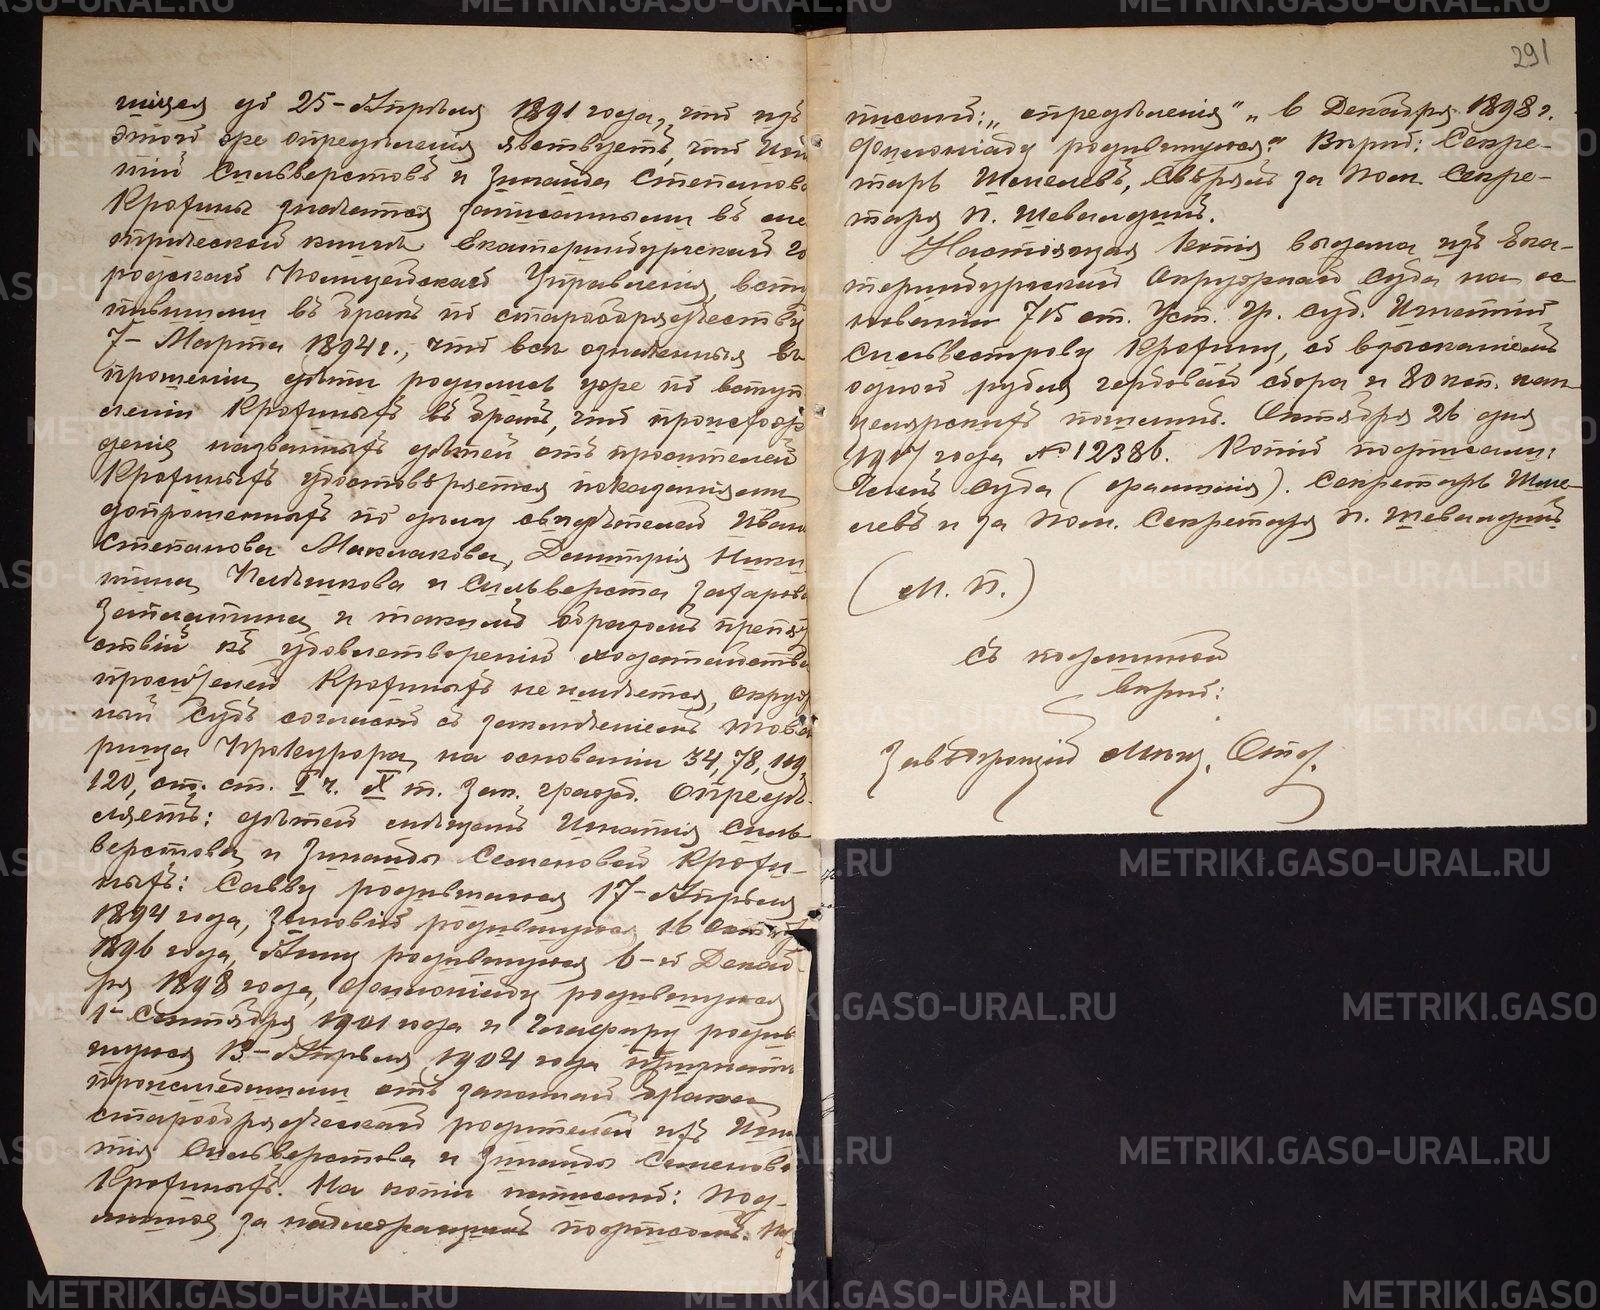 291
щися до 25-Апрѣля 1891 года, что изъ
этого же опредѣленія явствуетъ, что Игна
тій Сильверстовъ и Зинаида Степанова
Крохины значатся записанными въ ме
трической книгѣ Екатеринбургскаго го
родскаго Полицейскаго Управленія, всту
пившими въ бракъ по старообрядчеству
7-Марта 1894 г., что все означенныя въ
прошеніи дѣти родились уже по вступ
леніи Крохиныхъ въ бракъ, что происхож
деніе названныхъ дѣтей отъ просителей
Крохиныхъ удостовѣряется показаніями
допрошенныхъ по дѣлу свидѣтелей Ивана
Степанова Маклакова, Димитрія Ники
тина и Сильверста Захарова
Заплатина и такимъ образомъ препят
ствій къ удовлетворенію ходатайства
просителей Крохиныхъ не имѣется, окруж
ный Судъ согласно съ заключеніемъ Това
рища Прокурора, на основаніи 34, 78, 119,
120, ст. ст. I ч. X т. Зак. гражд. Опредѣ-
ляетъ: дѣтей мѣщанъ Игнатія Силь-
верстова и Зинаиды Семеновой Крохи-
ныхъ: Савву родившагося 17-Апрѣля
1894 года, Зиновію родившуюся 16 Октяб
1896 года, Анну родившуюся 6-го Декаб-
ря 1898 года, Фоминіаду родившуюся
1-Сентября 1901 года и Глафиру родив
шуюся 13-Апрѣля 1904 года признать
происшедшими отъ законнаго брака
старообрядческаго родителей ихъ Игна
тія Сильверстова и Зинаиды Семеново
Крохиныхъ. На копіи написано: Под-
линное за надлежащимъ подписомъ. На
писано: „опредѣленія" „6 Декабря 1898 г.
Фоминіаду родившуюся." Вѣрно: Секре-
тарь Шмелевъ, Свѣрялъ за Пом. Секре-
таря П. Шевалдинъ.
Настоящая копія выдана изъ Ека-
теринбургскаго Окружнаго Суда на ос
нованіи 715 ст. Уст. Гр. Суд. Игнатію
Сильвестрову Крохину, со взысканіемъ
одного рубля гербоваго сбора и 80 коп. кан
целярскихъ пошлинъ. Октября 26 дня
1917 года № 12386. Копію подписали:
Членъ Суда (фамилія). Секретарь Шме-
левъ и за Пом. Секретаря П. Шевалдинъ
(М. П.)
Съ подлиннымъ
вѣрно:
Завѣдующій